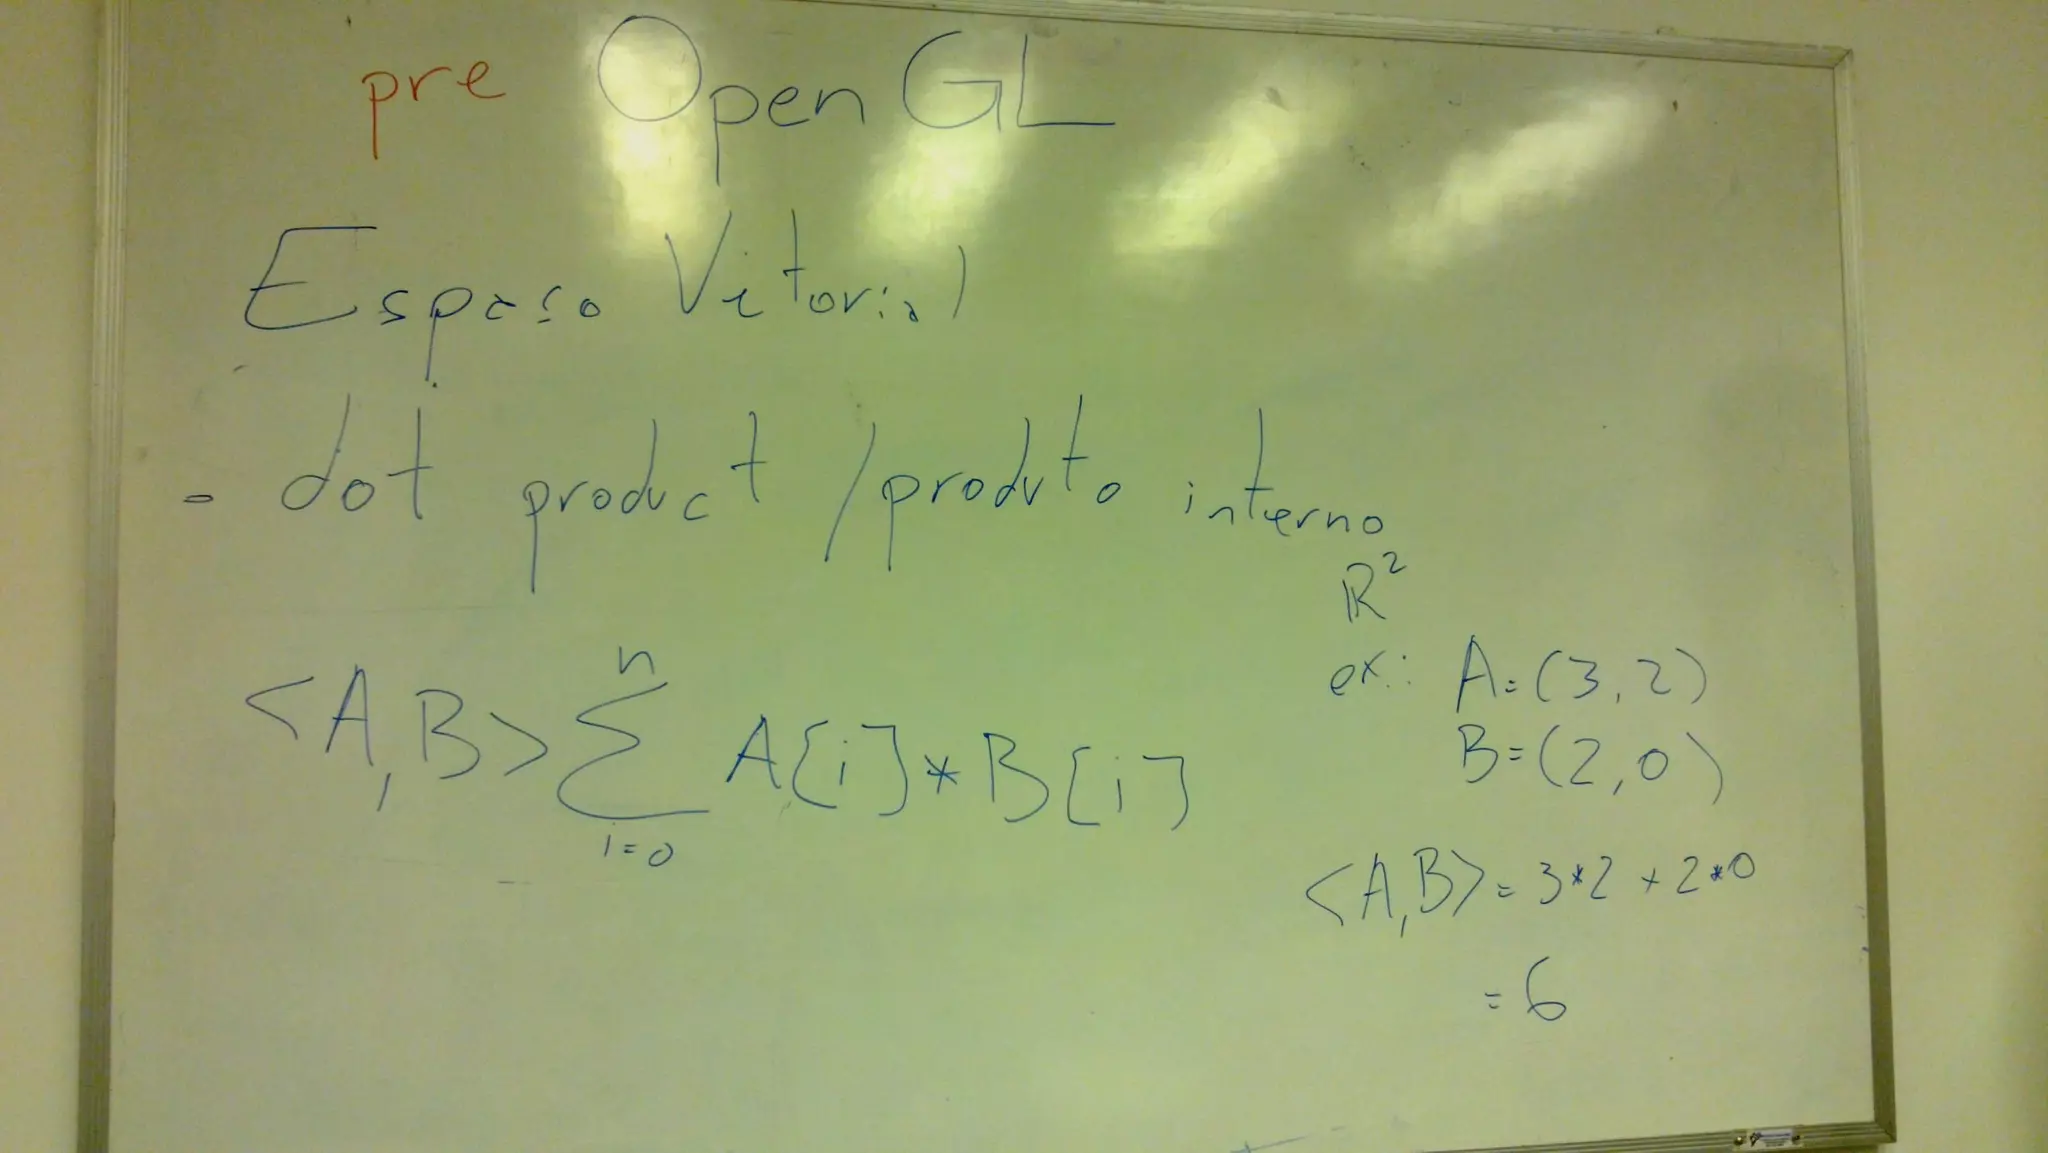 pre OpenGL
Espaço Vetorial
- dot product / produto interno
R²
ex.: A=(3,2)
B=(2,0)
n
<A,B> ∑ A[i]*B[i]
i=0
<A,B> = 3*2 + 2*0
= 6